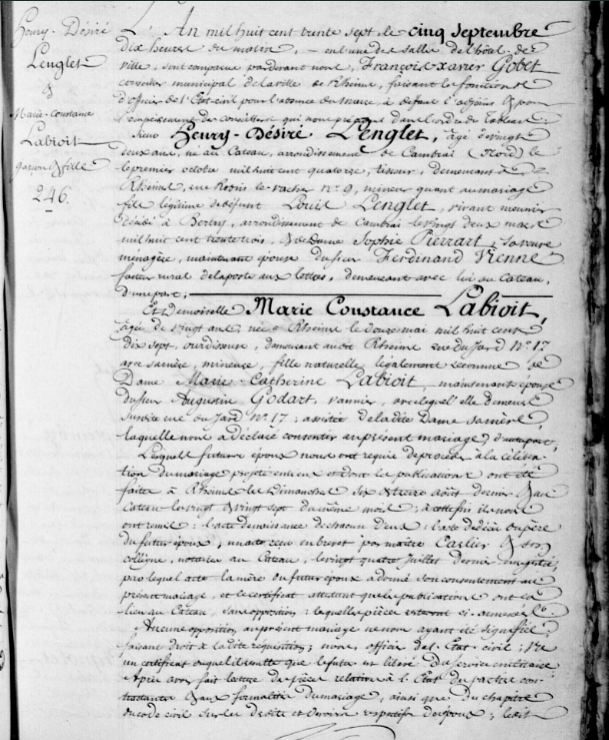 Henry-Désiré
Lenglet
&
Marie-Constance
Labioit
garçon & fille
246.
L'An mil huit cent trente sept le cinq Septembre
dix heures du matin, en l'une des salles de l'hôtel de
ville, sont comparus pardevant nous, François-xavier Gobet
conseiller municipal de la ville de Rheims, faisant les fonctions
d'officier de l'Etat-civil pour l'absence du Maire, à défaut d'adjoins & pour
l'empêchement des conseillers qui nous précèdent dans l'ordre du tableau
Sieur Henry-Désiré Lenglet, âgé de vingt
deux ans, né au Cateau, arrondissement de Cambrai (Nord) le
premier octobre mil huit cent quatorze, tisseur, demeurant à
Rheims, rue n° 9, mineur quant au mariage
fils légitime de défunt Louis Lenglet, vivant meunier
décédé à Bertry, arrondissement de Cambrai le vingt deux mars
mil huit cent trente trois, & de Dame Sophie Pierrart, sa veuve
ménagère, maintenant épouse du sieur Ferdinand Vienne
facteur rural de la poste aux lettres, demeurant avec lui au Cateau,
d'une part;
Et demoiselle Marie Constance Labioit,
âgée de vingt ans, née à Rheims le douze mai mil huit cent
dix sept, ourdisseuse, demeurant audit Rheims rue du Jard N° 17
avec sa mère, mineure, fille naturelle légalement reconnue de
Dame Marie-Catherine Labioit, maintenant épouse
du sieur Augustin Godart, vannier, avec lequel elle demeure
susdite rue du Jard N° 17; assistée de ladite Dame sa mère,
laquelle nous a déclaré consentir au présent mariage, d'autre part,
Lesquels futurs époux nous ont requis de procéder à la célébra-
tion du mariage projeté entre eux et dont les publications ont été
faites à Rheims les Dimanches six et treize août dernier & au
Cateau les vingt & vingt sept du même mois; à cette fin ils nous
ont remis: l'acte de naissance de chacun d'eux; l'acte de décès du père
du futur époux; un acte reçu en brevet par maître Carlier & son
collègue, notaires au Cateau, le vingt quatre Juillet dernier, enregistré,
par lequel acte la mère du futur époux a donné son consentement au
présent mariage, et le certificat attestant que les publications ont eu
lieu au Cateau, sans opposition; lesquelles pièces resteront ci-annexées.
Aucune opposition au présent mariage ne nous ayant été signifiée;
faisant droit à ladite réquisition; nous, officier de l'Etat-civil; Vu
un certificat duquel il résulte que le futur est libéré du service militaire
Après avoir fait lecture des pièces relatives à l'Etat des parties con-
tractantes & aux formalités du mariage, ainsi que du chapitre
du code civil sur les droits et devoirs respectifs des époux; ledit